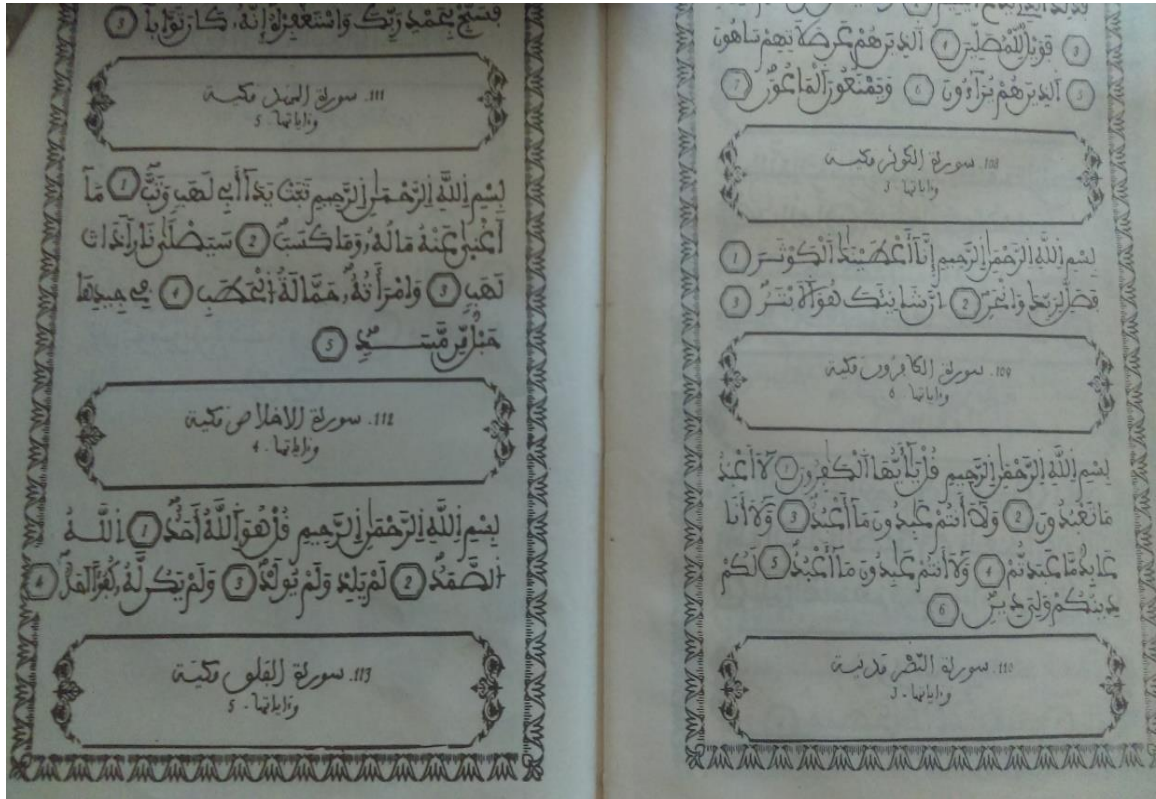 3 فَوَيْلٌ لِّلْمُصَلِّينَ 4 اَلذِينَ هُمْ عَن صَلَاتِهِمْ سَاهُونَ
5 اَلذِينَ هُمْ يُرَآءُونَ 6 وَيَمْنَعُونَ اَلْمَاعُونَ 7
108. سورة الكوثر مكية
وءاياتها . 3
بِسْمِ اِللَّهِ اِلرَّحْمَٰنِ اِلرَّحِيمِ إِنَّآ أَعْطَيْنَٰكَ اَلْكَوْثَرَ 1
فَصَلِّ لِرَبِّكَ وَانْحَرْ 2 إِنَّ شَانِئَكَ هُوَ اَلَابْتَرُ 3
109. سورة الكافرون مكية
وءاياتها . 6
بِسْمِ اِللَّهِ اِلرَّحْمَٰنِ اِلرَّحِيمِ قُلْ يَٰٓأَيُّهَا اَلْكَٰفِرُونَ 1 لَآ أَعْبُدُ
مَا تَعْبُدُونَ 2 وَلَآ أَنتُمْ عَٰبِدُونَ مَآ أَعْبُدُ 3 وَلَآ أَنَا
عَابِدٌ مَّا عَبَدتُّمْ 4 وَلَآ أَنتُمْ عَٰبِدُونَ مَآ أَعْبُدُ 5 لَكُمْ
دِينُكُمْ وَلِيَ دِينِ 6
110. سورة النصر مدنية
وءاياتها . 3
فَسَبِّحْ بِحَمْدِ رَبِّكَ وَاسْتَغْفِرْهُ إِنَّهُۥ كَانَ تَوَّابًا 3
111. سورة المسد مكية
وءاياتها . 5
بِسْمِ اِللَّهِ اِلرَّحْمَٰنِ اِلرَّحِيمِ تَبَّتْ يَدَآ أَبِي لَهَبٍ وَتَبَّ 1 مَآ
أَغْنَىٰ عَنْهُ مَالُهُۥ وَمَا كَسَبَ 2 سَيَصْلَىٰ نَارًا ذَاتَ
لَهَبٍ 3 وَامْرَأَتُهُۥ حَمَّالَةُ اُلْحَطَبِ 4 فِي جِيدِهَا
حَبْلٌ مِّن مَّسَدٍ 5
112. سورة الاخلاص مكية
وءاياتها . 4
بِسْمِ اِللَّهِ اِلرَّحْمَٰنِ اِلرَّحِيمِ قُلْ هُوَ اَللَّهُ أَحَدٌ 1 اَللَّهُ
اُلصَّمَدُ 2 لَمْ يَلِدْ وَلَمْ يُولَدْ 3 وَلَمْ يَكُن لَّهُۥ كُفُؤًا 4
113. سورة الفلق مكية
وءاياتها . 5